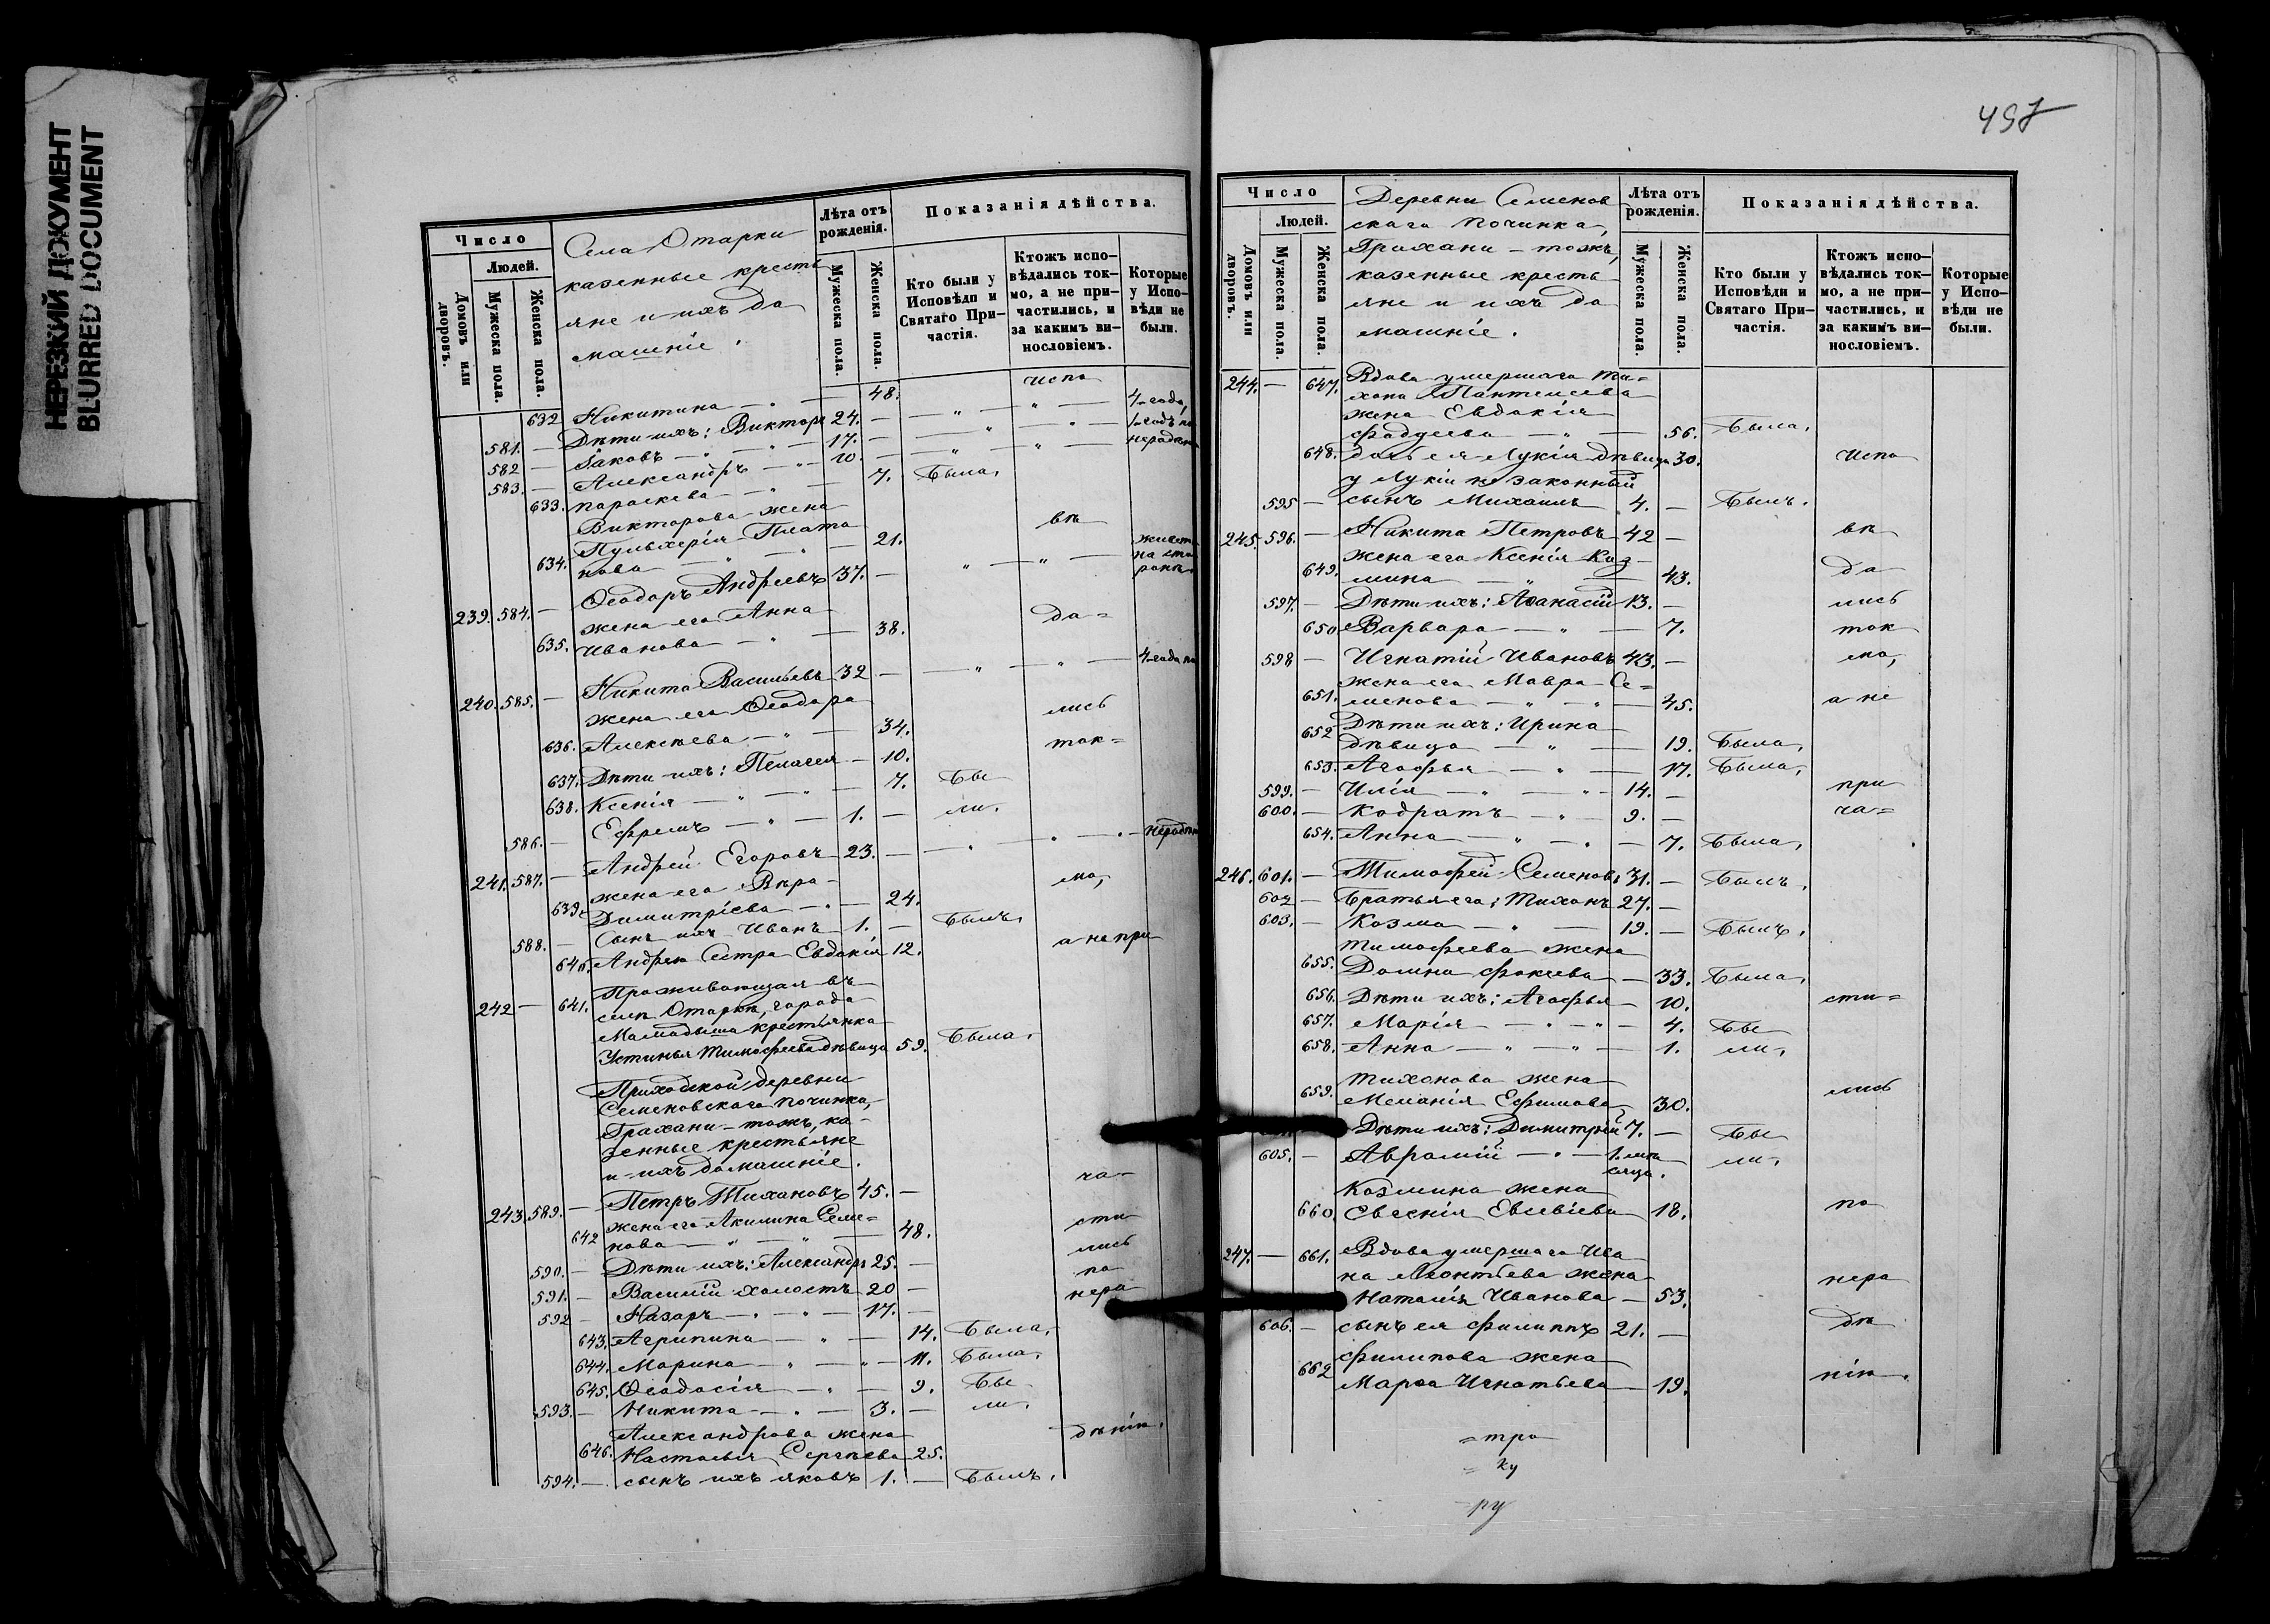 НЕРЕЗКИЙ ДОКУМЕНТ
BLURRED DOCUMENT
Число
Людей.
Домовъ или дворовъ.
Мужеска пола.
Женска пола.
Села Отарки
казенные кресть
яне и ихъ до
машніе.
Лѣта отъ рожденія.
Мужеска пола.
Женска пола.
Показанія дѣйства.
Кто были у Исповѣди и Святаго Причастія.
Ктожъ исповѣдались токмо, а не причастились, и за какимъ винословіемъ.
Которые у Исповѣди не были.
632 Никитина — 48. испо
581. — Дѣти ихъ: Викторъ 24. — 4 года,
582 — Іаковъ — 17. — 1 годъ по
583. — Александръ — 10. — нерадѣн
633. Параскева — 7. Была,
Викторова жена
Пульхерія Плато
634. нова — 21. вѣ
239. 584. — Ѳеодоръ Андреевъ 37. — живетъ на сто ронѣ.
жена его Анна
635. Иванова — 38. да=
240. 585. — Никита Васильевъ 32 — 4 года по
жена его Ѳеодора
636. Алексѣева — 34. лись
637. Дѣти ихъ: Пелагея — 10. ток=
638. Ксенія — 7. Бы
586. — Ефремъ — 1. — ли.
241. 587. — Андрей Егоровъ 23. — нерадѣн
жена его Вѣра
639. Димитріева — 24. мо,
588. — Сынъ ихъ Иванъ 1. — Былъ,
640. Андрея Сестра Евдокія 12. а не при
Проживающая въ
242 — 641. селѣ Отаркѣ, города
Мамадыша крестьянка
Устинья Тимофеева дѣвица 59. Была.
Приходской деревни
Семеновскаго Починка,
Грахани-тожъ, ка-
зенные крестьяне
и ихъ домашніе.
243. 589. — Петръ Тихановъ 45. — ча-
жена его Акилина Семе=
642 нова — 48. сти
590. — Дѣти ихъ: Александръ 25. — лись
591. — Василій холостъ 20 — по
592 — Назаръ — 17. — нера
643. Агрипина — 14. Была,
644. Марина — 11. Была,
645. Ѳеодосія — 9. Бы
593. — Никита — 3. — ли,
Александрова жена
646. Настасья Сергѣева 25. дѣнію.
594. — сынъ ихъ Яковъ 1. — Былъ,
497
Число
Людей.
Домовъ или дворовъ.
Мужеска пола.
Женска пола.
Деревни Семенов
скаго Починка,
Грахани-тожъ,
казенные кресть-
яне и ихъ до
машніе.
Лѣта отъ рожденія.
Мужеска пола.
Женска пола.
Показанія дѣйства.
Кто были у Исповѣди и Святаго Причастія.
Ктожъ исповѣдались токмо, а не причастились, и за какимъ винословіемъ.
Которые у Исповѣди не были.
244. — 647. Вдова умершаго Ти=
хона Пантелеева
жена Евдокія
Фадеева — 56. Была,
648. дочь ея Лукія дѣвица 30. Испо
у Лукіи незаконный
595 — сынъ Михаилъ 4. — Былъ.
245. 596. — Никита Петровъ 42 — вѣ
жена его Ксенія Коз-
649. мина — 43. да
597. — Дѣти ихъ: Аѳанасій 13. — лись
650 Варвара — 7. ток
598 — Игнатій Ивановъ 43. — мо,
жена его Мавра Се=
651. менова — 45. а не
652 Дѣти ихъ: Ирина
дѣвица — 19. Была,
653. Агафья — 17. Была,
599. — Илія — 14. — при
600. — Кодратъ — 9. — ча=
654. Анна — 7. Была,
246. 601. — Тимофей Семеновъ 31. — Былъ,
602 — Братья его: Тихонъ 27. —
603. — Козма — 19. — Былъ,
Тимофеева жена
655. Домна Фокеева — 33. Была,
656. Дѣти ихъ: Агафья — 10. сти=
657. Марія — 4. Бы
658. Анна — 1. ли,
Тихонова жена
659. Меланія Ефимова 30. лись
Дѣти ихъ: Димитрій 7. — Бы
605. — Аврамій — 1. мѣ сяца. ли,
Козмина жена
660. Евгенія Евсевіева 18. по
247. — 661. Вдова умершаго Ива
на Леонтьева жена
Наталія Иванова — 53. нера
606. — сынъ ея Филиппъ 21. — дѣ
Филипова жена
662 Марѳа Игнатьева — 19. нію.
=тра
=ку
ру